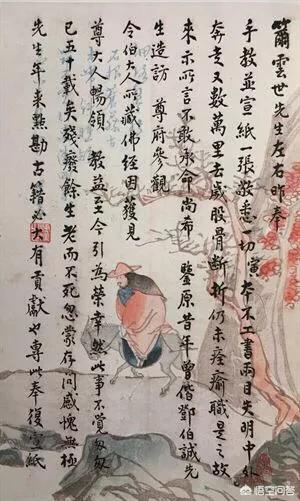 雲世先生左右昨奉
手教並宣紙一張敬悉一切寅本不工書兩目失明中外
奔走又數萬里去歲股骨斷折仍未痊癒職是之故
來示所言不敢承命尚希 鑒原昔年曾偕鄧伯誠先
生造訪 尊府參觀
令伯大人所藏佛經因獲見
尊大人暢領 教益至今引為榮幸然此事不覺匆匆
已五十載矣殘廢餘生老而不死忽蒙存問感愧無極
先生年來點勘古籍必大有貢獻也專此奉復宣紙
悟空问答